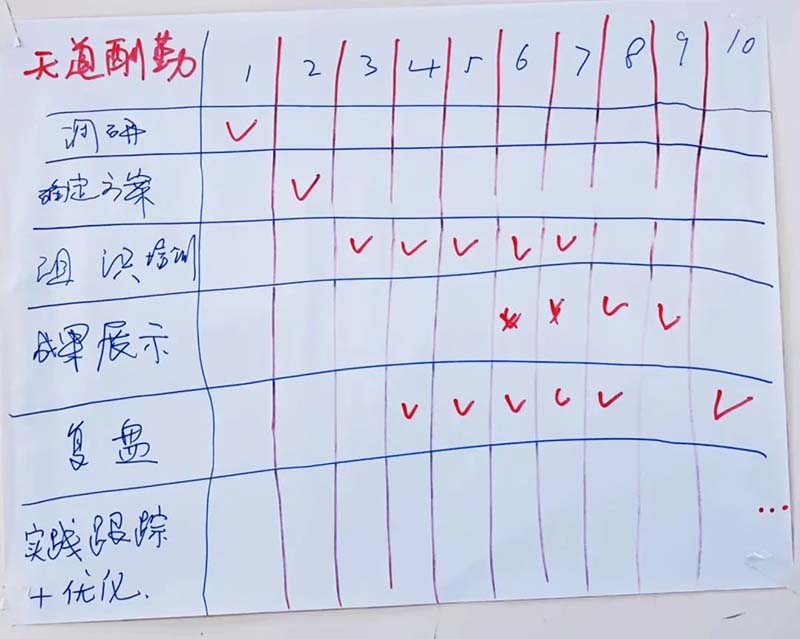 天道酬勤 1 2 3 4 5 6 7 8 9 10
调研 ✓
确定方案 ✓
组织培训 ✓ ✓ ✓ ✓ ✓
成果展示 ✓ ✓
复盘 ✓ ✓ ✓ ✓ ✓ ✓
实践跟踪 ...
+优化.